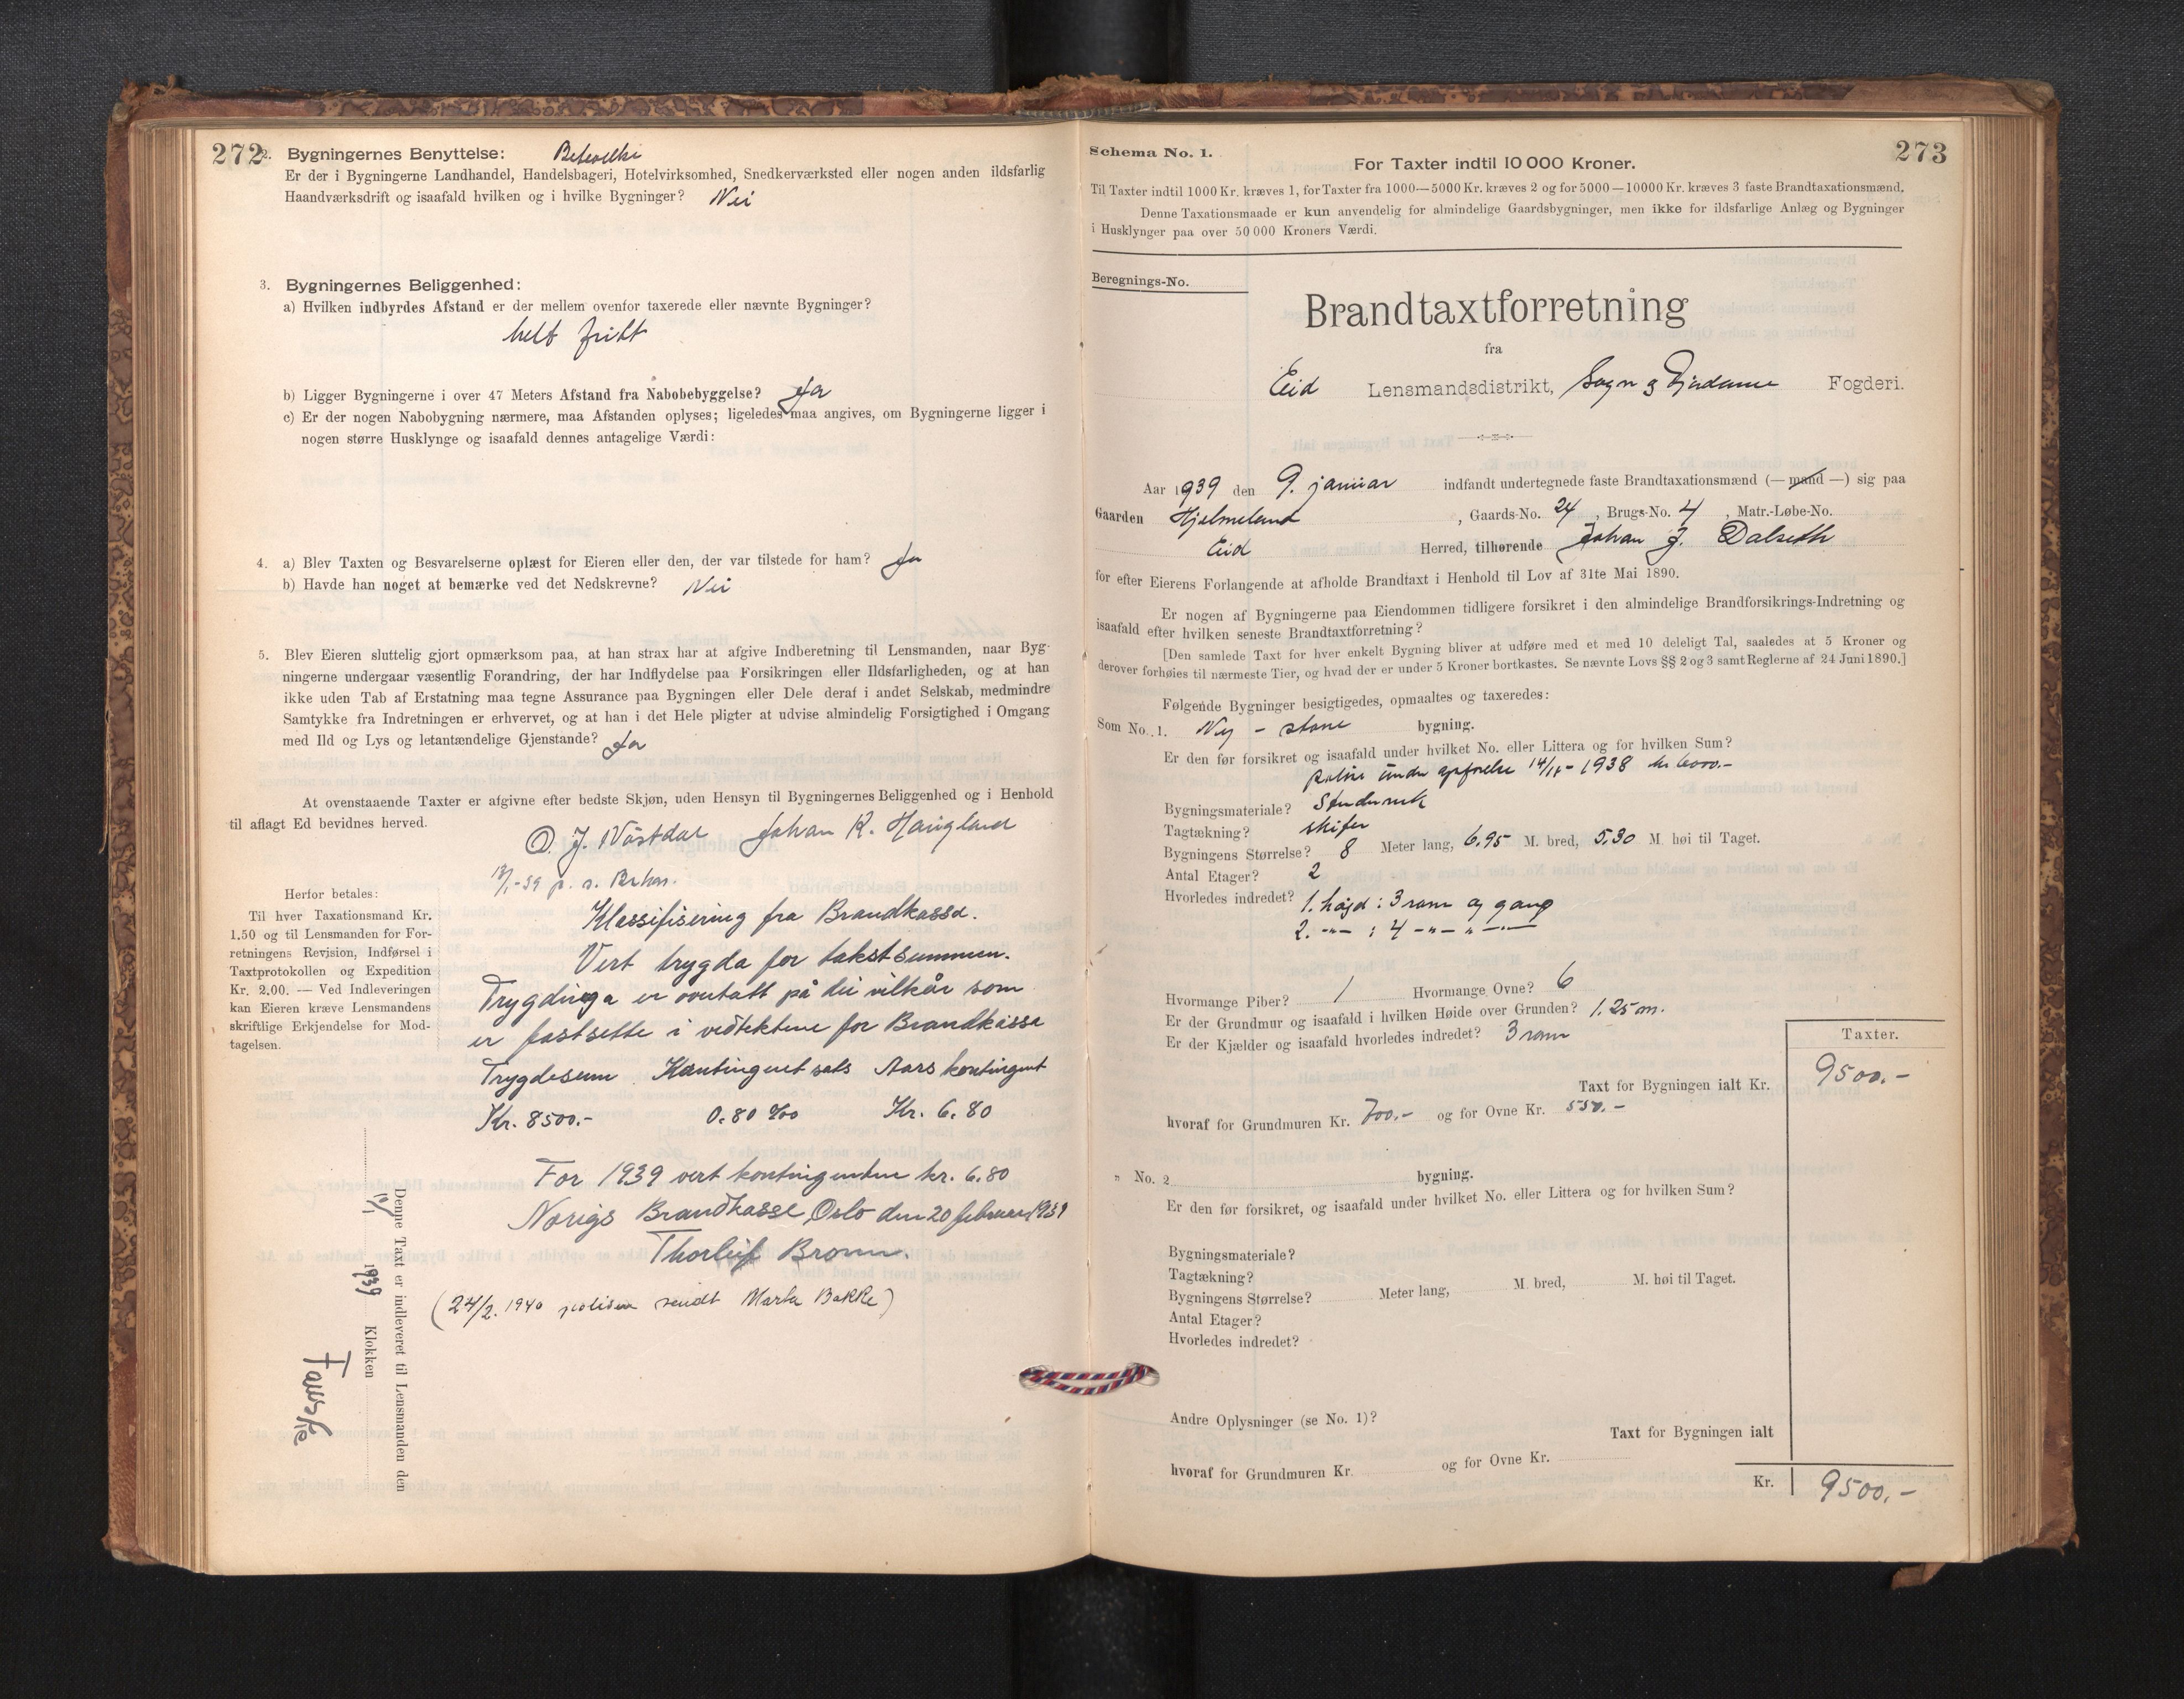 272
2. Bygningernes Benyttelse:
Er der i Bygningerne Landhandel, Handelsbageri, Hotelvirksomhed, Snedkerværksted eller nogen anden ildsfarlig
Haandværksdrift og isaafald hvilken og i hvilke Bygninger? Nei
3. Bygningernes Beliggenhed:
a) Hvilken indbyrdes Afstand er der mellem ovenfor taxerede eller nævnte Bygninger?
helt fritt
b) Ligger Bygningerne i over 47 Meters Afstand fra Nabobebyggelse? Ja
c) Er der nogen Nabobygning nærmere, maa Afstanden oplyses; ligeledes maa angives, om Bygningerne ligger i
nogen større Husklynge og isaafald dennes antagelige Værdi:
4. a) Blev Taxten og Besvarelserne oplæst for Eieren eller den, der var tilstede for ham? Ja
b) Havde han noget at bemærke ved det Nedskrevne? Nei
5. Blev Eieren sluttelig gjort opmærksom paa, at han strax har at afgive Indberetning til Lensmanden, naar Byg-
ningerne undergaar væsentlig Forandring, der har Indflydelse paa Forsikringen eller Ildsfarligheden, og at han
ikke uden Tab af Erstatning maa tegne Assurance paa Bygningen eller Dele deraf i andet Selskab, medmindre
Samtykke fra Indretningen er erhvervet, og at han i det Hele pligter at udvise almindelig Forsigtighed i Omgang
med Ild og Lys og letantændelige Gjenstande? Ja
At ovenstaaende Taxter er afgivne efter bedste Skjøn, uden Hensyn til Bygningernes Beliggenhed og i Henhold
til aflagt Ed bevidnes herved.
O. J. Nåstdal Johan K. Haugland
Herfor betales:
Til hver Taxationsmand Kr.
1.50 og til Lensmanden for For-
retningens Revision, Indførsel i
Taxtprotokollen og Expedition
Kr. 2.00. — Ved Indleveringen
kan Eieren kræve Lensmandens
skriftlige Erkjendelse for Mod-
tagelsen.
Klassifisering fra Brandkassa.
Vert trygda for takstsummen.
Trygdinga er overtatt på dei vilkår som
er fastsette i vedtektene for Brandkassa
Trygdesum Kontingentsats Aarskontingent
Kr. 8500.- 0.80 ‰ Kr. 6.80
For 1939 vert kontingenten kr. 6.80
Norigs Brandkasse, Oslo den 20 februar 1939
Thorleif Bronn.
(24/2. 1940 polisen sendt Marta Bakke)
Denne Taxt er indleveret til Lensmanden den
10/1 1939 Klokken
273
Schema No. 1.
For Taxter indtil 10 000 Kroner.
Til Taxter indtil 1000 Kr. kræves 1, for Taxter fra 1000—5000 Kr. kræves 2 og for 5000—10000 Kr. kræves 3 faste Brandtaxationsmænd.
Denne Taxationsmaade er kun anvendelig for almindelige Gaardsbygninger, men ikke for ildsfarlige Anlæg og Bygninger
i Husklynger paa over 50 000 Kroners Værdi.
Beregnings-No.
Brandtaxtforretning
fra
Eid Lensmandsdistrikt, Sogn og Fjordane Fogderi.
Aar 1939 den 9. januar indfandt undertegnede faste Brandtaxationsmænd (— mand —) sig paa
Gaarden Hjelmeland, Gaards-No. 24, Brugs-No. 4, Matr.-Løbe-No.
Eid Herred, tilhørende Johan J. Dalseth
for efter Eierens Forlangende at afholde Brandtaxt i Henhold til Lov af 31te Mai 1890.
Er nogen af Bygningerne paa Eiendommen tidligere forsikret i den almindelige Brandforsikrings-Indretning og
isaafald efter hvilken seneste Brandtaxtforretning?
[Den samlede Taxt for hver enkelt Bygning bliver at udføre med et med 10 deleligt Tal, saaledes at 5 Kroner og
derover forhøies til nærmeste Tier, og hvad der er under 5 Kroner bortkastes. Se nævnte Lovs §§ 2 og 3 samt Reglerne af 24 Juni 1890.]
Følgende Bygninger besigtigedes, opmaaltes og taxeredes:
Som No. 1. Ny - stove bygning.
Er den før forsikret og isaafald under hvilket No. eller Littera og for hvilken Sum?
polise under opførelse 1938 kr 6000.-
Bygningsmateriale? Stenderverk
Tagtækning? skifer
Bygningens Størrelse? 8 Meter lang, 6.95 M. bred, 5,30 M. høi til Taget.
Antal Etager? 2
Hvorledes indredet? 1. høgd: 3 rom og gang
2. -"- : 4 -"- " -"-
Hvormange Piber? 1 Hvormange Ovne? 6
Er der Grundmur og isaafald i hvilken Høide over Grunden? 1.25 m.
Er der Kjælder og isaafald hvorledes indredet? 3 rom
Taxter.
Taxt for Bygningen ialt Kr. 9500.-
hvoraf for Grundmuren Kr. 700.- og for Ovne Kr. 550.-
" No. 2 bygning.
Er den før forsikret, og isaafald under hvilket No. eller Littera og for hvilken Sum?
Bygningsmateriale?
Tagtækning?
Bygningens Størrelse? Meter lang, M. bred, M. høi til Taget.
Antal Etager?
Hvorledes indredet?
Andre Oplysninger (se No. 1)?
Taxt for Bygningen ialt
hvoraf for Grundmuren Kr. og for Ovne Kr.
Kr. 9500.-